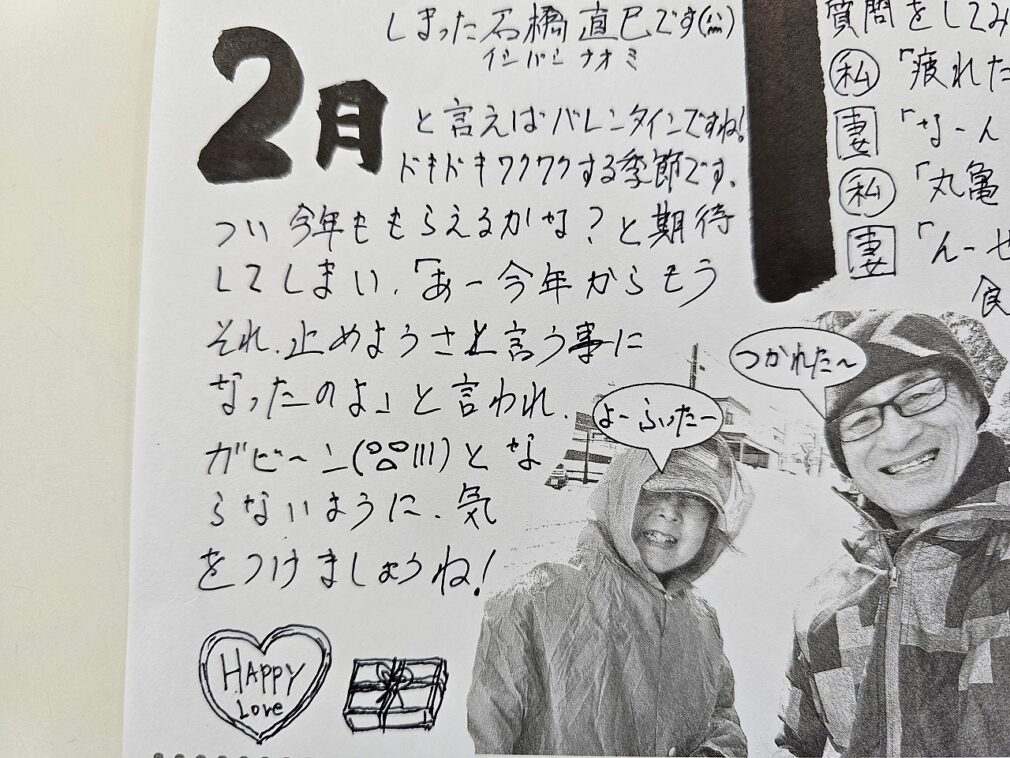 しまった石橋直巳です(^^)
イシバシ ナオミ
2月
と言えばバレンタインですね!
ドキドキワクワクする季節です、
つい今年ももらえるかな?と期待
してしまい、「あー今年からもう
それ、止めようさと言う事に
なったのよ」と言われ、
ガビ〜ン(
)とな
らないように、気
をつけましょうね!
HAPPY
Love
質問をしてみ
私「疲れた
妻「なーん
私「丸亀
妻「んーせ
食
つかれた〜
よーふいたー